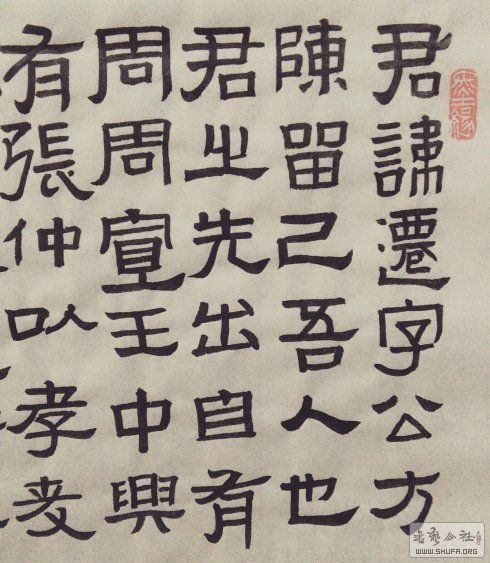 君諱遷字公方
陳留己吾人也
君之先出自有
周周宣王中興
有張仲以孝友
書藝公社
WWW.SHUFA.ORG